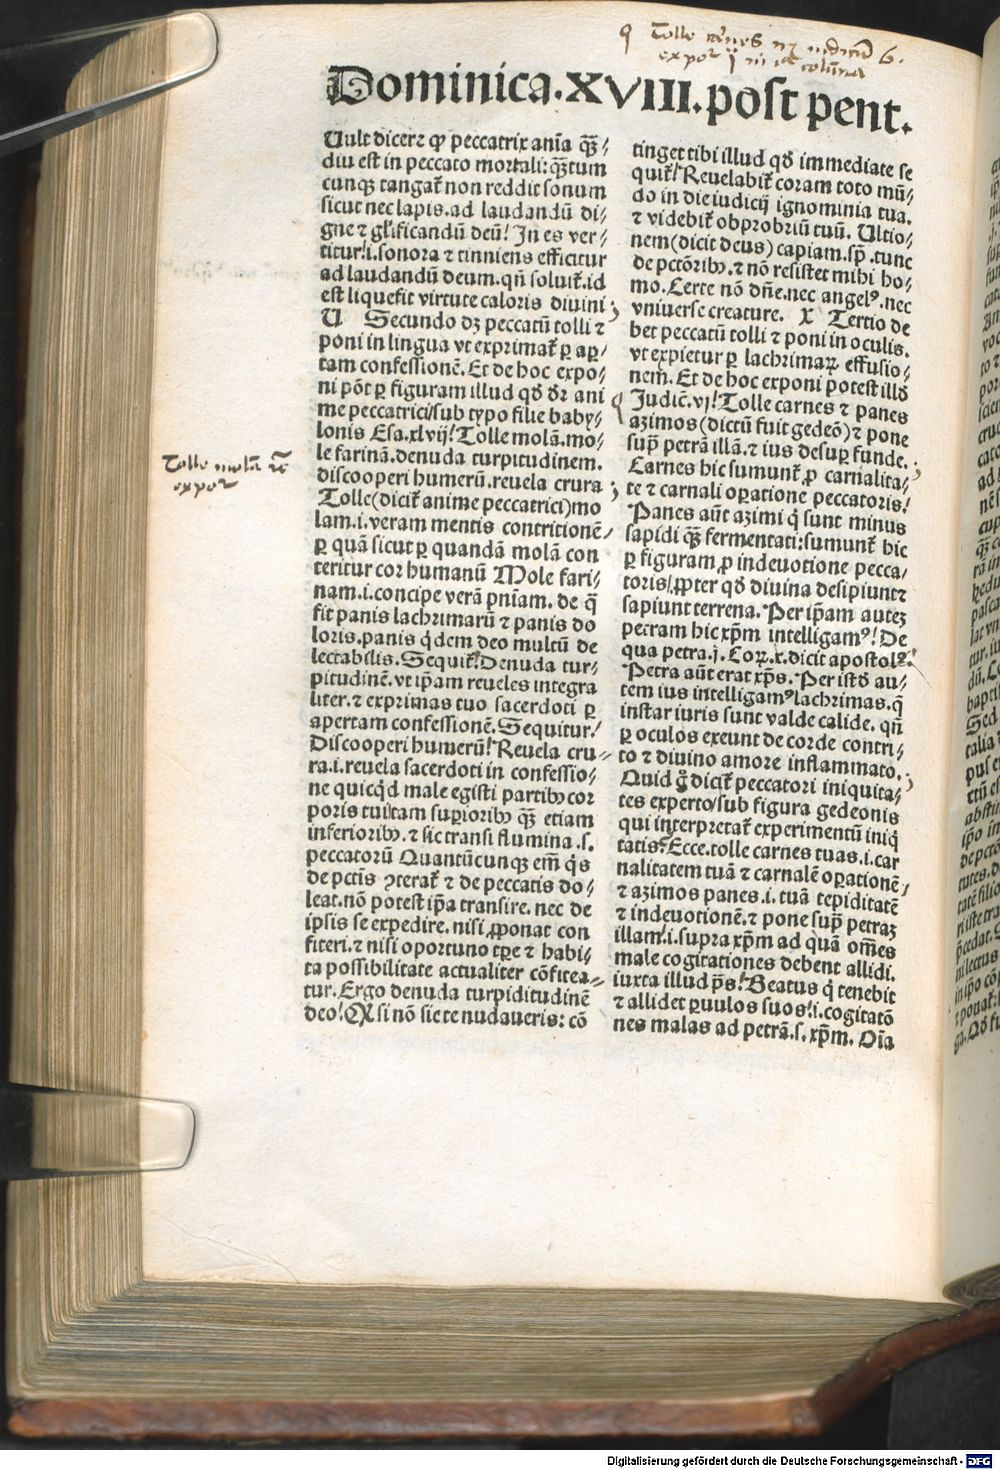 Tolle carnes
Dominica.XVIII.post pent.
Uult dicerꝫ ꝙ peccatrix anīa qꝫ̄⸗
diu est in peccato mortali: qꝫ̄tum
cunqꝫ tangat̄ non reddit sonum
sicut nec lapis. ad laudandū di⸗
gne ⁊ gl̄ificandū deū! In es ver⸗
titur! .i. sonora ⁊ tinniens efficitur
ad laudandū deum. qn̄ soluit̄. id
est liquefit virtute caloris diuini
V Secundo dꝫ peccatū tolli ⁊
poni in lingua vt exprimat̄ ꝑ aꝑ⸗
tam confessionē. Et de hoc expo⸗
ni pōt ꝑ figuram illud qđ dr̄ ani
me peccatrici/sub typo filie baby⸗
lonis Esa.xlvij! Tolle molā. mo⸗
le farinā. denuda turpitudinem.
discooperi humerū. reuela crura
Tolle (dicit̄ anime peccatrici) mo
lam .i. veram mentis contritionē/
ꝑ quā sicut ꝑ quandā molā con
teritur cor humanū Mole fari⸗
nam .i. concipe verā pn̄iam. de q̄
fit panis lachrimarū ⁊ panis do
loris. panis q̇dem deo multū de
lectabilis. Sequit̄! Denuda tur⸗
pitudinē. vt ip̄am reueles integra
liter. ⁊ exprimas tuo sacerdoti ꝑ
apertam confessionē. Sequitur/
Discooperi humerū! Reuela cru⸗
ra .i. reuela sacerdoti in confessio⸗
ne quicq̇d male egisti partibꝰ cor
poris tui/tam suꝑioribꝰ qꝫ̄ etiam
inferioribꝰ. ⁊ sic transi flumina .s.
peccatorū Quantūcunqꝫ em̄ q̇s
de pctīs ꝯterat̄ ⁊ de peccatis do⸗
leat. nō potest ip̄a transire. nec de
ipsis se expedire. nisi ꝓponat con
fiteri. ⁊ nisi oportuno tꝑe ⁊ habi⸗
ta possibilitate actualiter cōfitea⸗
tur. Ergo denuda turpiditudinē
deo! Qꝛ si nō sic te nudaueris: cō
tinget tibi illud qđ immediate se
quit̄! Reuelabit̄ coram toto mū⸗
do in die iudicij ignominia tua.
⁊ videbit̄ obprobriū tuū. Ultio⸗
nem (dicit deus) capiam. sp̄. tunc
de pctōribꝰ. ⁊ nō resistet mihi ho⸗
mo. Certe nō dn̄e. nec angelꝰ. nec
vniuerse creature. X Tertio de
bet peccatū tolli ⁊ poni in oculis.
vt expietur ꝑ lachrimaꝝ effusio⸗
nem. Et de hoc exponi potest illđ
Judic̄.vj! Tolle carnes ⁊ panes
azimos (dictū fuit gedeō) ⁊ pone
suꝑ petrā illā. ⁊ ius desuꝑ funde.
Carnes hic sumunt̄ ꝓ carnalita⸗
te ⁊ carnali oꝑatione peccatoris!
Panes aūt azimi q̇ sunt minus
sapidi qꝫ̄ fermentati: sumunt̄ hic
ꝑ figuram ꝓ indeuotione pecca⸗
toris/ꝓpter qđ diuina desipiunt ⁊
sapiunt terrena. Per ip̄am auteꝫ
petram hic xp̄m intelligamꝰ! De
qua petra .j. Coꝝ.x. dicit apostolꝰ.
Petra aūt erat xp̄s. Per istō au⸗
tem ius intelligamꝰ lachrimas. q̄
instar iuris sunt valde calide. qn̄
ꝑ oculos exeunt de corde contri⸗
to ⁊ diuino amore inflammato.
Quid g̊ dicit̄ peccatori iniquita⸗
tes experto/sub figura gedeonis
qui interpretat̄ experimentū iniq̇
tatis? Ecce. tolle carnes tuas .i. car
nalitatem tuā ⁊ carnalē oꝑationē/
⁊ azimos panes .i. tuā tepiditatē
⁊ indeuotionē. ⁊ pone suꝑ petraꝫ
illam! .i. supra xp̄m ad quā om̄es
male cogitationes debent allidi.
iuxta illud ps̄! Beatus q̇ tenebit
⁊ allidet ꝑuulos suos! .i. cogitatō
nes malas ad petrā .s. xp̄m. Oīa
Tolle molā
expo
Digitalisierung gefördert durch die Deutsche Forschungsgemeinschaft - DFG